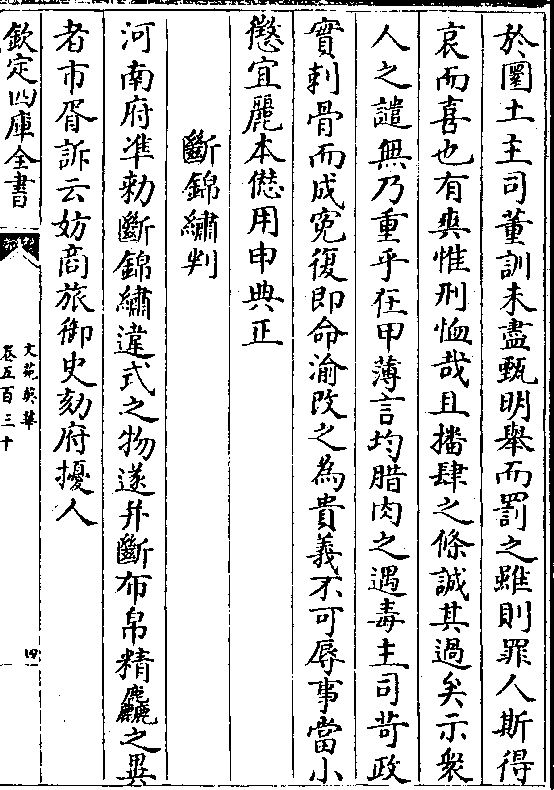 於圜土主司董訓未盡甄明舉而罰之雖則罪人斯得
哀而喜也有爽惟刑恤哉且播肆之條誠其過矣示衆
人之譴無乃重乎在甲薄言均腊肉之遇毒主司苛政
實刺骨而成寃復即命渝改之為貴義不可辱事當小
懲宜麗本愆用申典正
斷錦繡判
河南府準勑斷錦繡違式之物遂并斷布帛精麤之異
者市胥訴云妨商旅御史劾府擾人
欽定四庫全書
文苑英華
卷五百三十
四